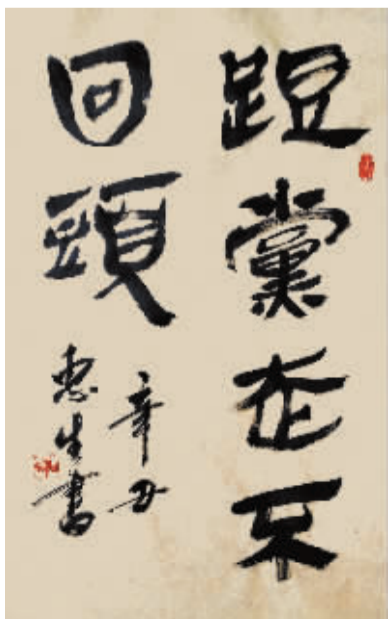 跟黨走不
回頭
辛丑
生書